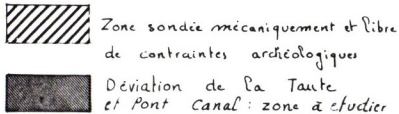 Zone sondée mécaniquement et libre
de contraintes archéologiques
Déviation de la Taute
et Pont Canal : zone à etudier